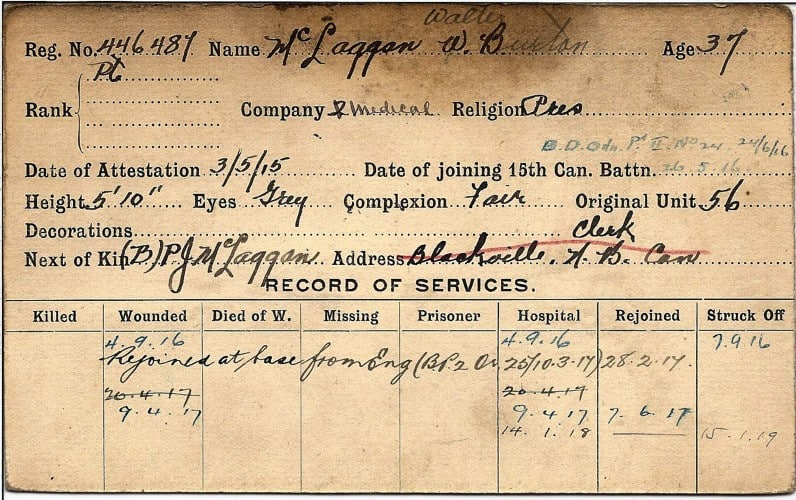 Walter
Reg. No. 446487 Name McLaggan W. Burton Age 37
Pt
Rank Company Medical Religion Pres
B.D. Odn. Pt II. No 24 24/6/16
Date of Attestation 3/5/15 Date of joining 15th Can. Battn. 26.5.16
Height 5'10" Eyes Grey Complexion Fair Original Unit 56
Decorations Clerk
Next of Kin (B) P J. McLaggan Address Blackville. N. B. Can
RECORD OF SERVICES.
Killed Wounded Died of W. Missing Prisoner Hospital Rejoined Struck Off
4.9.16 4.9.16 7.9.16
Rejoined at base from Eng (B.P.2 Or. 25/10.3.17) 28.2.17.
20.4.17 20.4.17
9.4.17 9.4.17 7.6.17
14.1.18 15.1.19